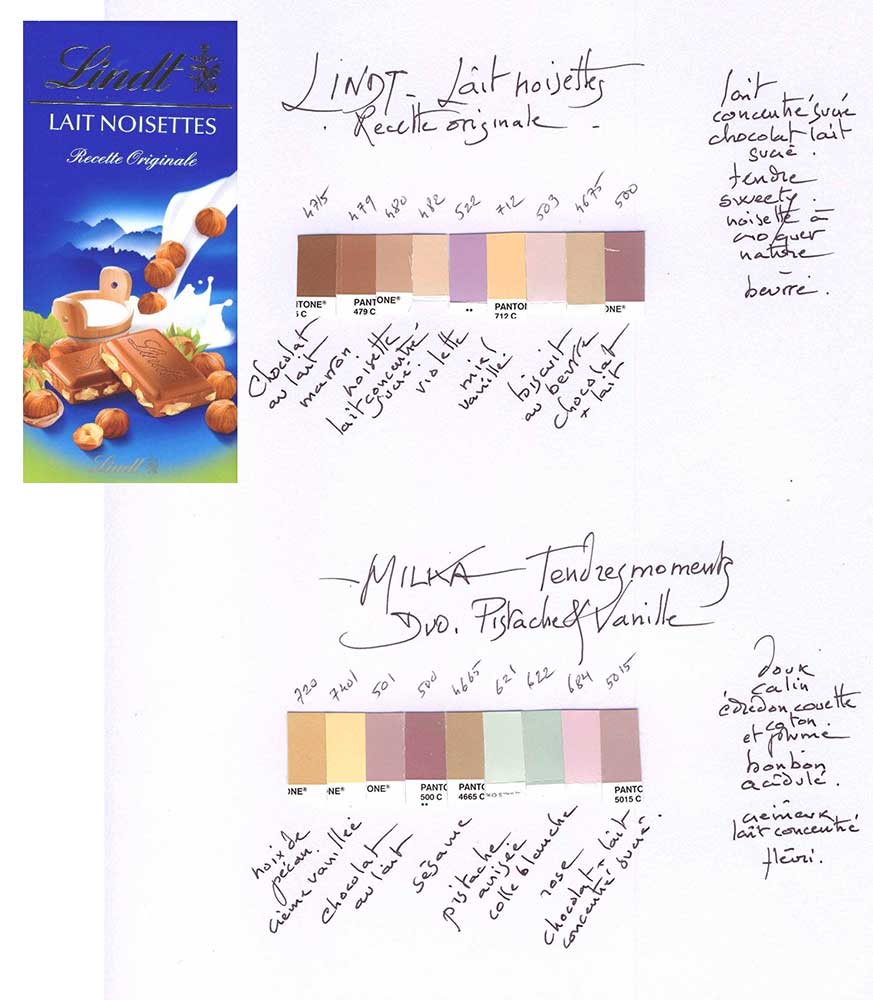 Lindt
LAIT NOISETTES
Recette Originale
Lindt
Lindt
LINDT - Lait noisettes
Recette originale -
4715 479 480 482 522 712 503 4675 500
NTONE®
5 C
PANTONE®
479 C
PANTON
712 C
ONE®
chocolat
au lait
marron
noisette
lait concentré
sucré
violette
miel
vanille
biscuit
au beurre
chocolat
+ lait
lait
concentré sucré
chocolat lait
sucré.
tendre
sweety.
noisette à
croquer
nature
beurré.
- MILKA - Tendres moments
Duo. Pistache & Vanille
720 7401 501 500 4665 621 622 684 5015
ONE®
NE®
ONE®
PANTO
500 C
PANTC
4665 C
PANTC
5015 C
noix de
pécan.
crème vanillée
chocolat
au lait
sésame
pistache
anisée
colle blanche
rose
chocolat + lait
concentré sucré.
doux
calin
édredon, couette
coton.
et plume
bonbon
acidulé.
crémeux
lait concentré
fleuri.